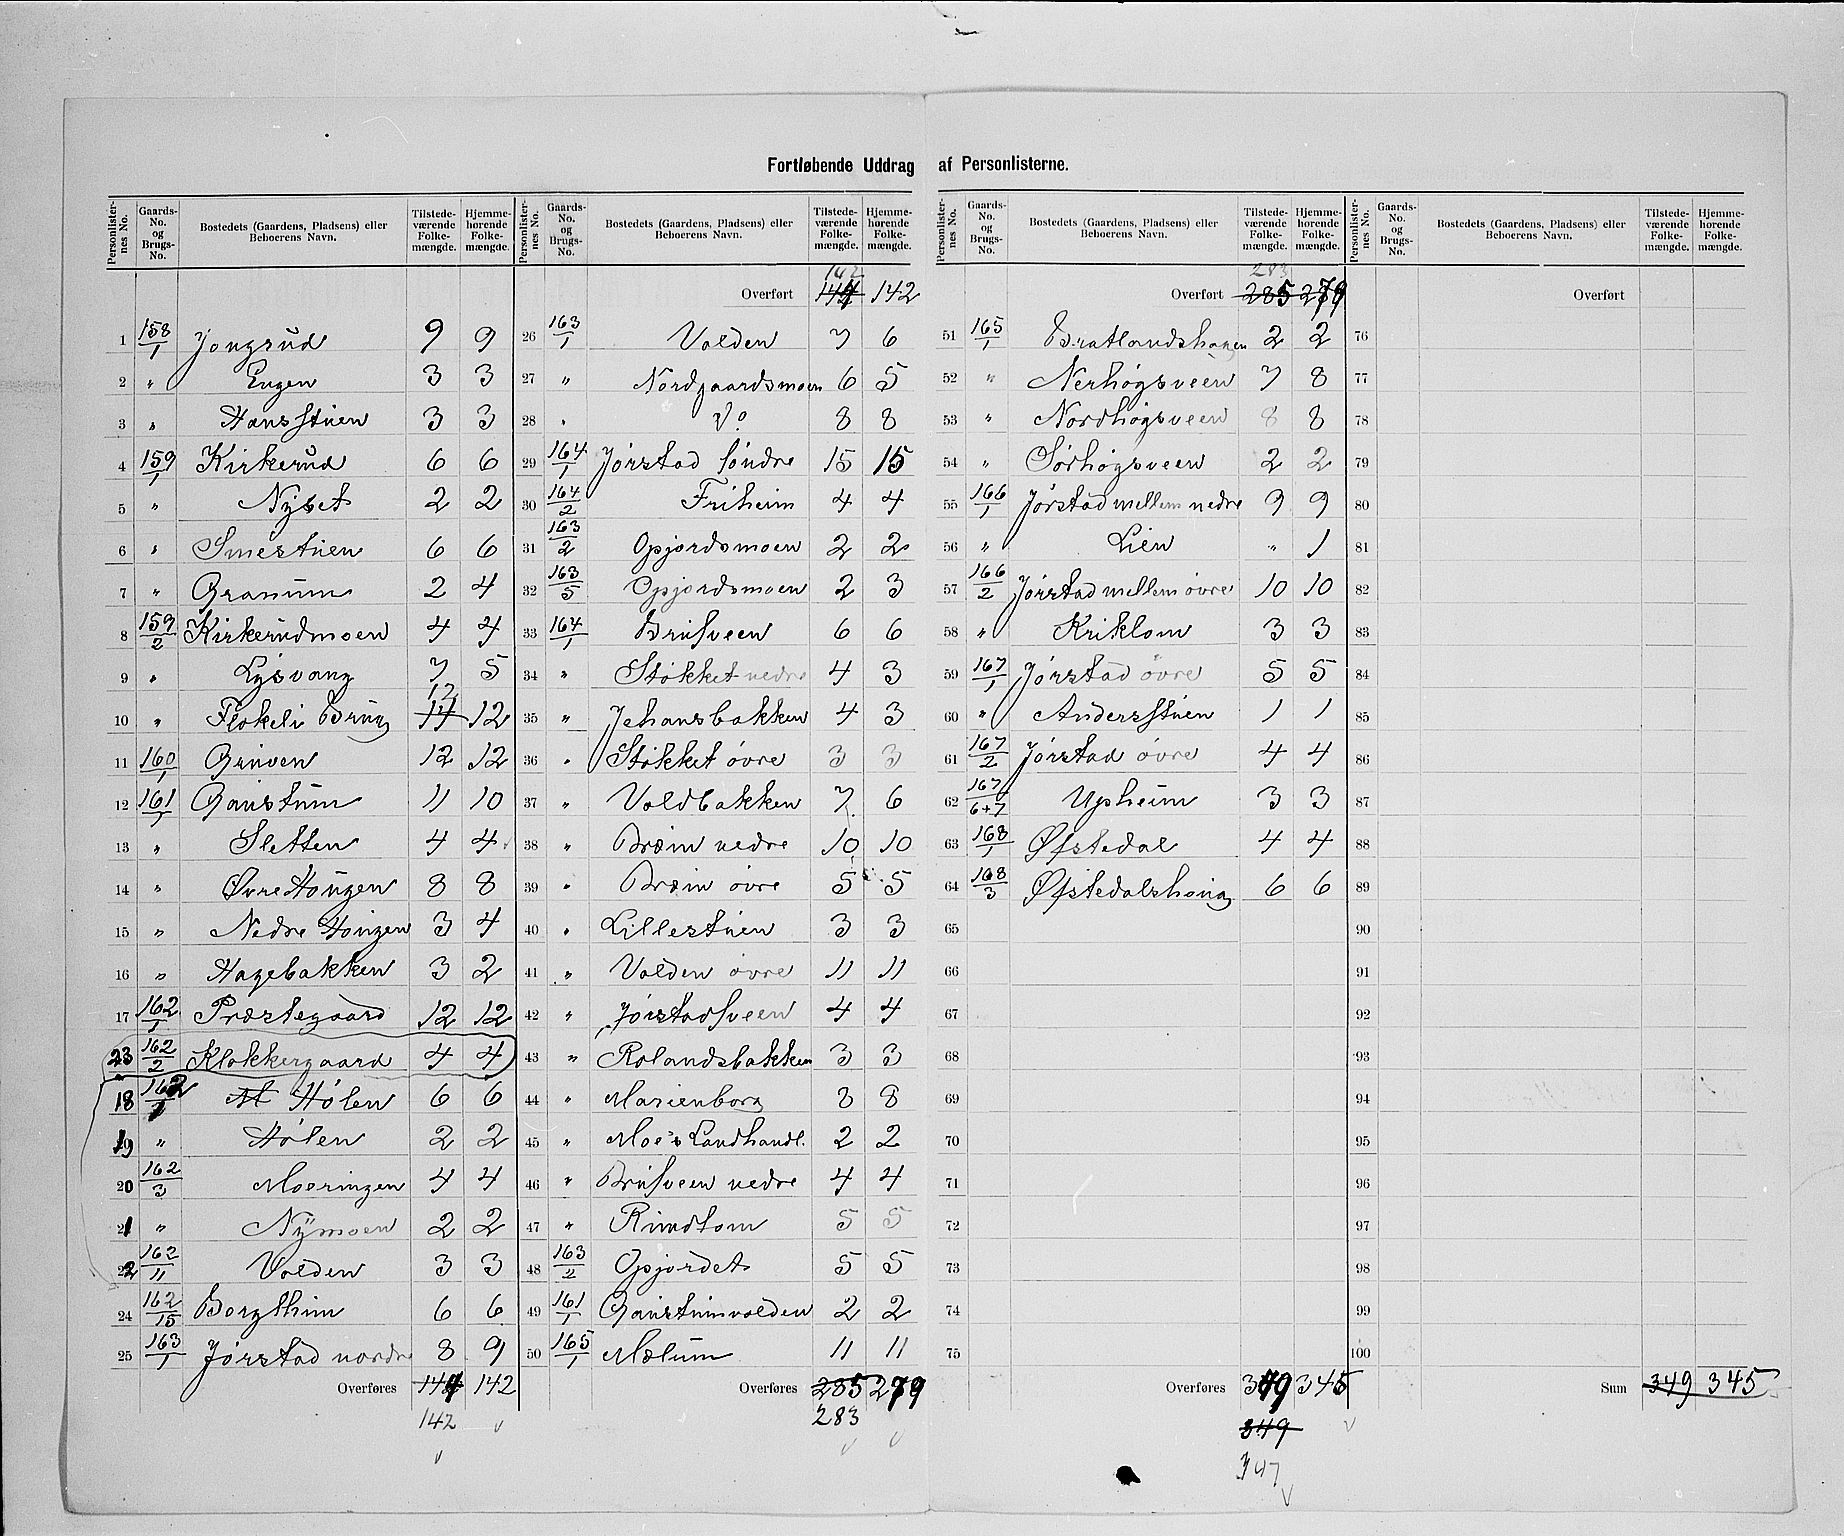 Fortløbende Uddrag af Personlisterne.
Personlister-nes No. | Gaards-No. og Brugs-No. | Bostedets (Gaardens, Pladsens) eller Beboerens Navn. | Tilstede-værende Folke-mængde. | Hjemme-hørende Folke-mængde.
1 158/1 Jongsrud 9 9
2 " Engen 3 3
3 " Hansstuen 3 3
4 159/1 Kirkerud 6 6
5 " Nyset 2 2
6 " Smestuen 6 6
7 " Granum 2 4
8 159/2 Kirkerudmoen 4 4
9 " Lysvang 7 5
10 " Flokeli Brug 14 12 12
11 160/1 Gruven 12 12
12 161/1 Gaustum 11 10
13 " Sletten 4 4
14 " Øvre Hougen 8 8
15 " Nedre Hougen 3 4
16 " Hagebakken 3 2
17 162/1 Præstegaard 12 12
23 162/2 Klokkergaard 4 4
18 162/1 Hølen 6 6
19 " Hølen 2 2
20 162/3 Moeringen 4 4
21 " Nÿmoen 2 2
22 162/11 Volden 3 3
24 162/15 Borgthim 6 6
25 163/1 Jørstad nordre 8 9
Overføres 144 142
142
Personlister-nes No. | Gaards-No. og Brugs-No. | Bostedets (Gaardens, Pladsens) eller Beboerens Navn. | Tilstede-værende Folke-mængde. | Hjemme-hørende Folke-mængde.
142
Overført 144 142
26 163/1 Volden 7 6
27 " Nordgaardsmoen 6 5
28 " Do 8 8
29 164/1 Jørstad søndre 15 15
30 164/2 Friheim 4 4
31 163/2 Opjordsmoen 2 2
32 163/5 Opjordsmoen 2 3
33 164/1 Brusveen 6 6
34 " Stokket nedre 4 3
35 " Johansbakken 4 3
36 " Stokket øvre 3 3
37 " Voldbakken 7 6
38 " Bræin nedre 10 10
39 " Bræin øvre 5 5
40 " Lillestuen 3 3
41 " Volden øvre 11 11
42 " Jørstadsveen 4 4
43 " Rolandsbakken 3 3
44 " Marienborg 8 8
45 " Moe's Landhandl. 2 2
46 " Brusveen nedre 4 4
47 " Rundtom 5 5
48 163/2 Opjordet 5 5
49 161/1 Gaustumvolden 2 2
50 165/1 Mælum 11 11
Overføres 285 279
283
Personlister-nes No. | Gaards-No. og Brugs-No. | Bostedets (Gaardens, Pladsens) eller Beboerens Navn. | Tilstede-værende Folke-mængde. | Hjemme-hørende Folke-mængde.
283
Overført 285 279
51 165/1 Bratlandshagen 2 2
52 " Nerhøgsveen 7 8
53 " Nordhøgsveen 8 8
54 " Sørhøgsveen 2 2
55 166/1 Jørstad mellem nedre 9 9
56 " Lien " 1
57 166/2 Jørstad mellem øvre 10 10
58 " Kriklom 3 3
59 167/1 Jørstad øvre 5 5
60 " Andersstuen 1 1
61 167/2 Jørstad øvre 4 4
62 167/6+7 Upheim 3 3
63 168/1 Øfstedal 4 4
64 168/3 Øfstedalshaug 6 6
65
66
67
68
69
70
71
72
73
74
75
Overføres 349 345
349
347
Personlister-nes No. | Gaards-No. og Brugs-No. | Bostedets (Gaardens, Pladsens) eller Beboerens Navn. | Tilstede-værende Folke-mængde. | Hjemme-hørende Folke-mængde.
Overført
76
77
78
79
80
81
82
83
84
85
86
87
88
89
90
91
92
93
94
95
96
97
98
99
100
Sum 349 345